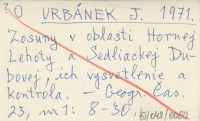 O URBÁNEK J. 1971.
Zosuny v oblasti Hornej
Lehoty a Sedliackej Du-
bovej, ich vysvetlenie a
kontrola. - Geogr. Čas.
23, no 1: 8-30.